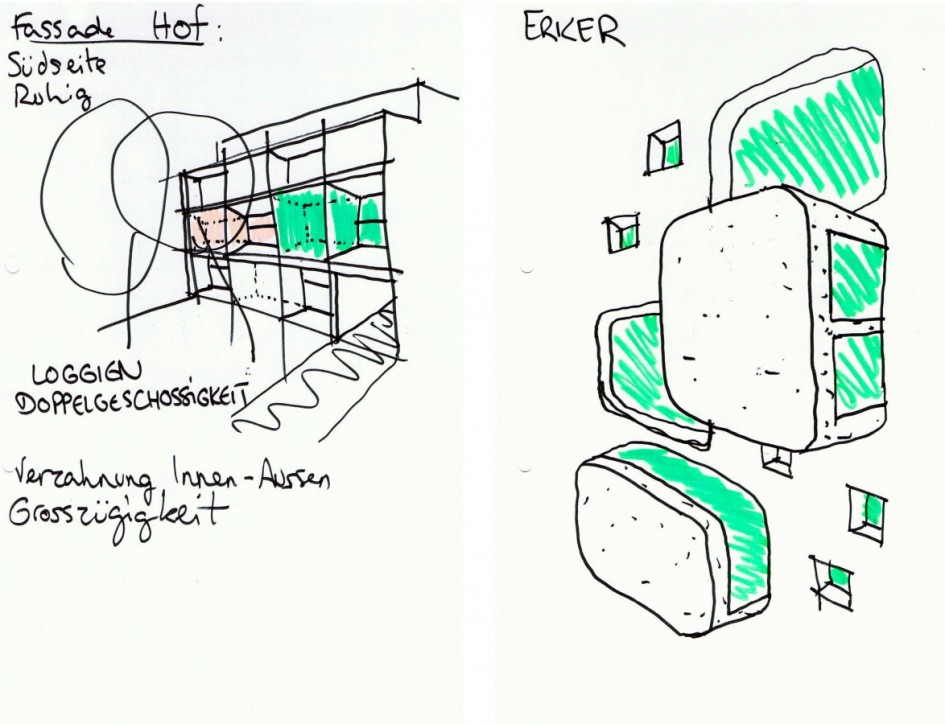 Fassade Hof:
Südseite
Ruhig
LOGGIEN
DOPPELGESCHOSSIGKEIT
Verzahnung Innen-Aussen
Grosszügigkeit
ERKER